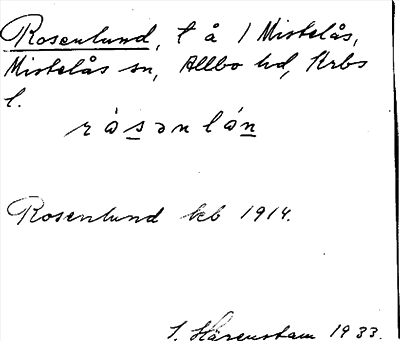 Rosenlund, t å 1 Mistelås,
Mistelås sn, Allbo hd, Krbs
l.
Rosenlund kb 1914.
S. Härenstam 1933.